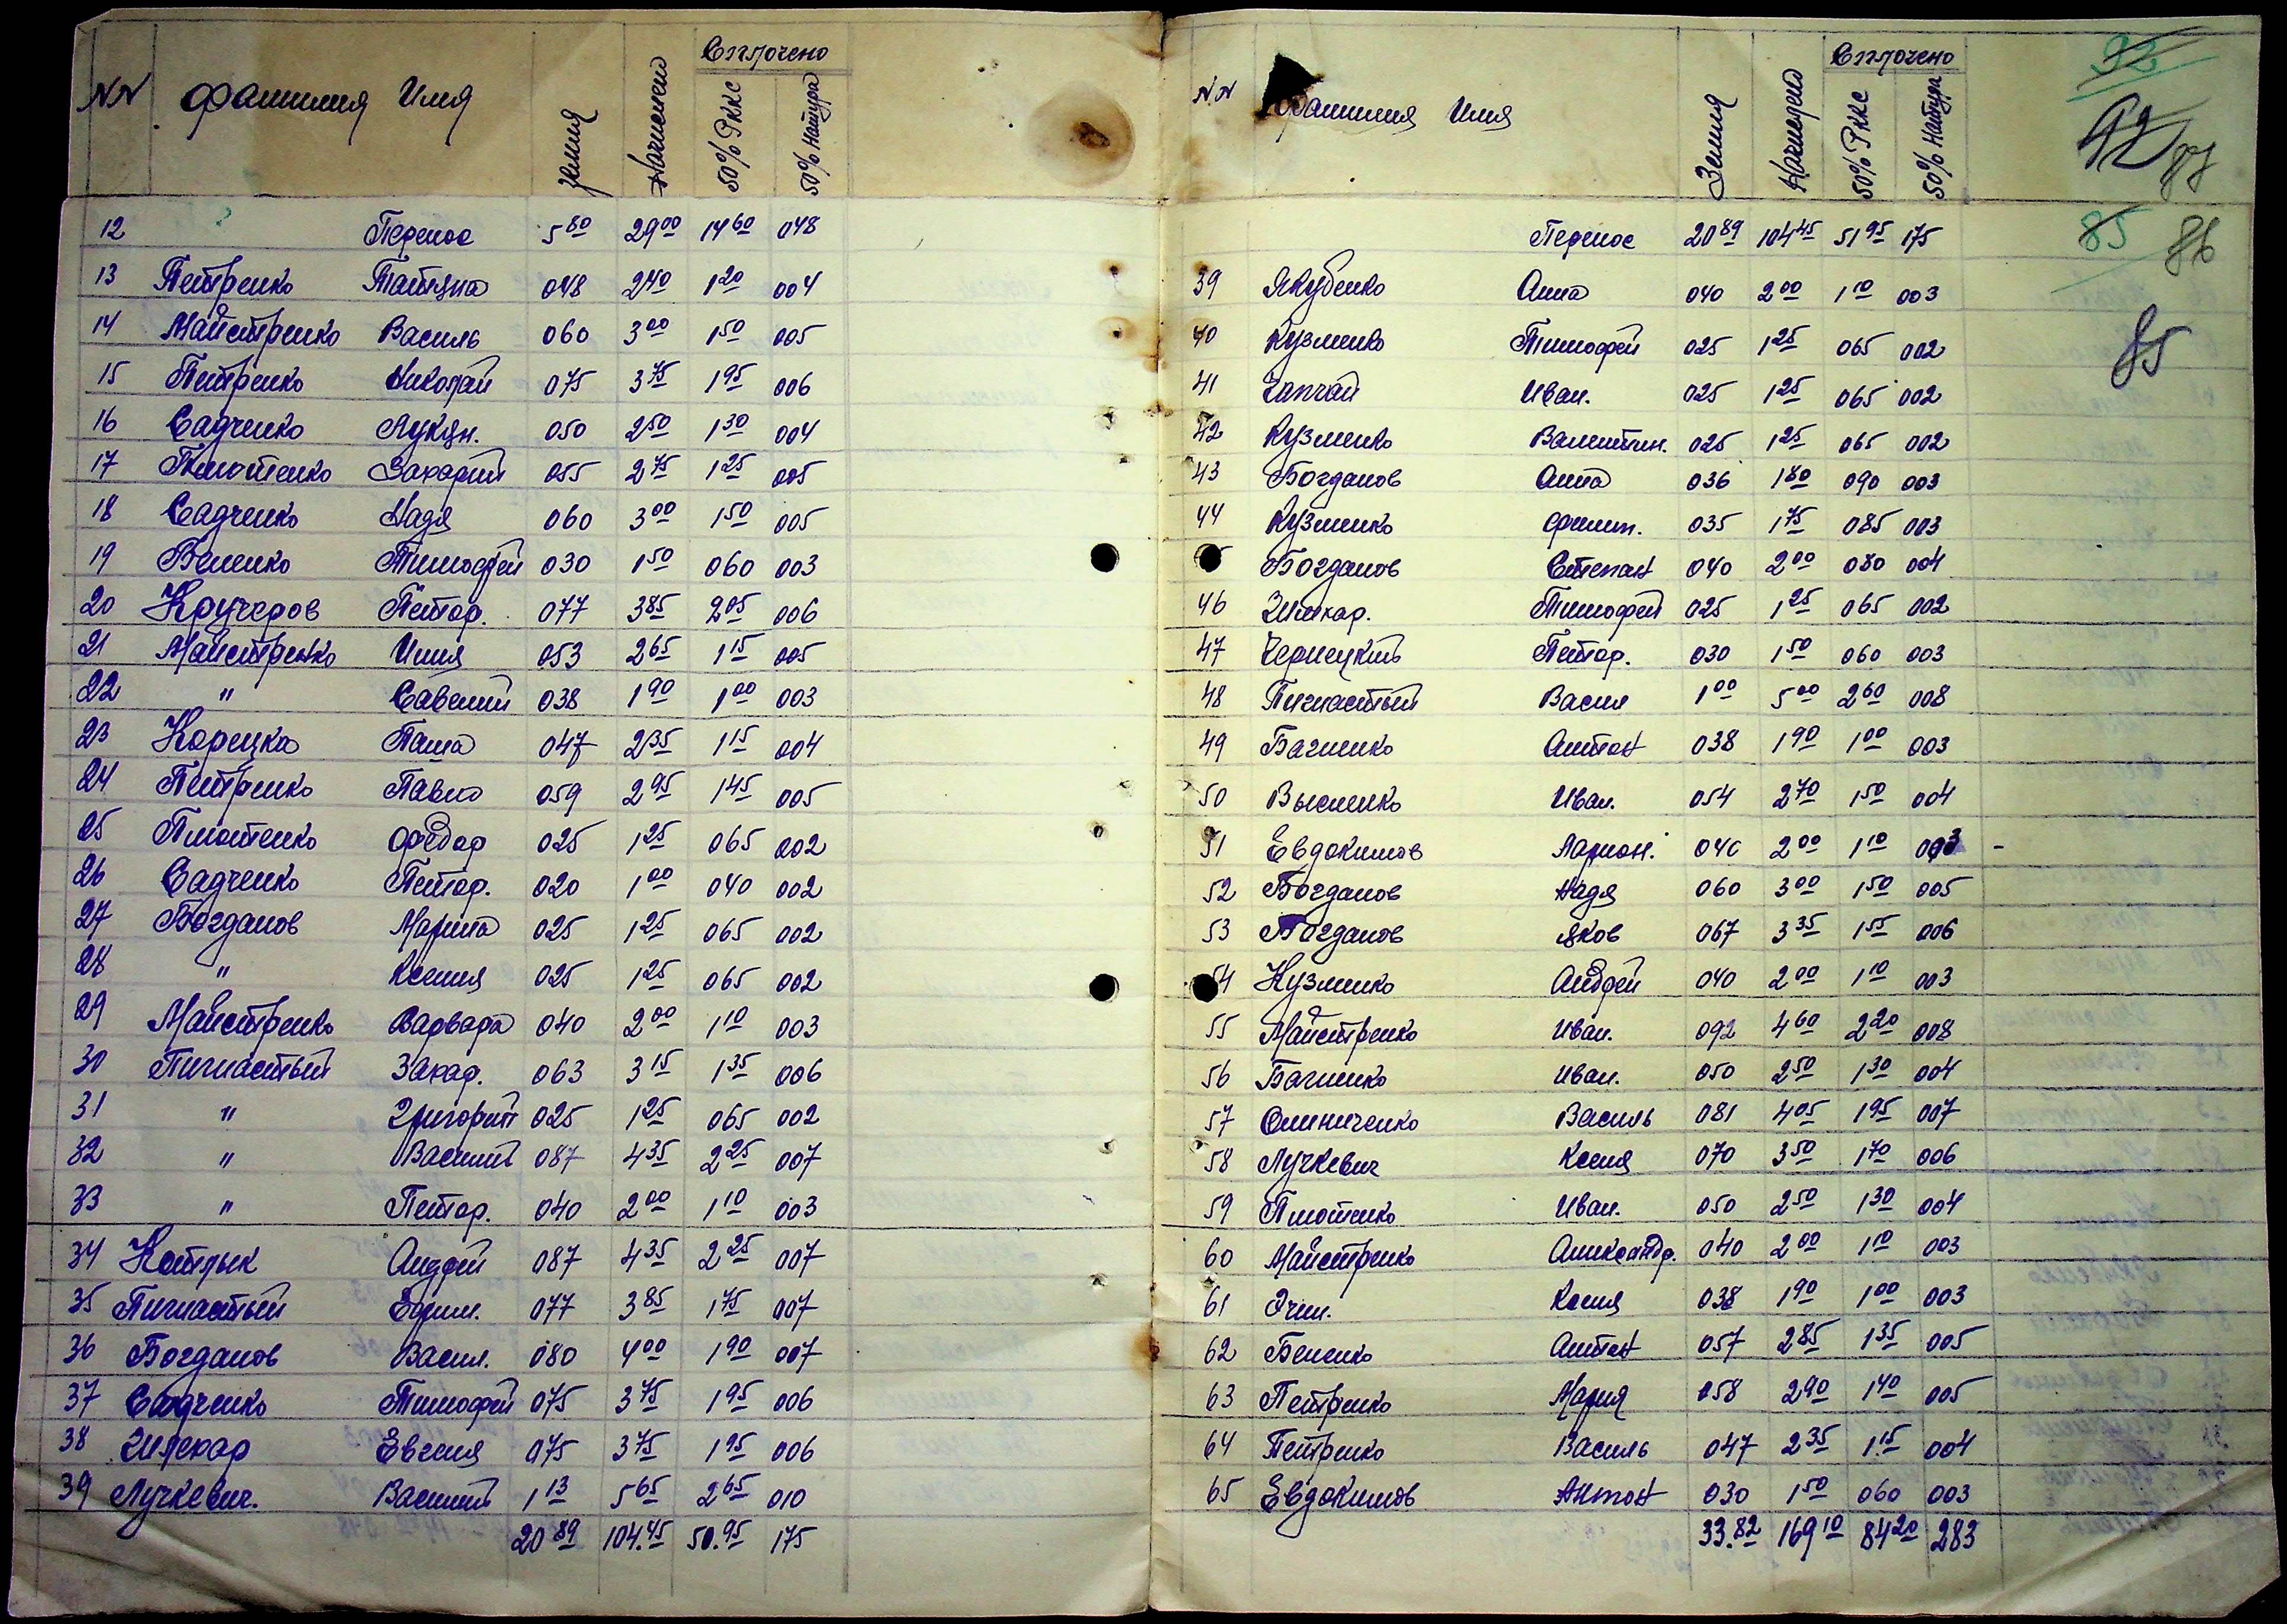 NN Фамилия Имя Земля Начислено Сплочено 50% РККС 50% Натура
12 Перенос 5 80 29 00 14 60 048
13 Петренко Татяна 048 2 40 1 20 004
14 Майстренко Василь 060 3 00 1 50 005
15 Петренко Николай 075 3 75 1 95 006
16 Садченко Лукян. 050 2 50 1 30 004
17 Плютенко Захарий 055 2 75 1 25 005
18 Садченко Надя 060 3 00 1 50 005
19 Беленко Тимофей 030 1 50 060 003
20 Кручеров Пётор. 077 3 85 2 05 006
21 Майстренко Илия 053 2 65 1 15 005
22 " Савелий 038 1 90 1 00 003
23 Корецка Паша 047 2 35 1 15 004
24 Петренко Павло 059 2 95 1 45 005
25 Плютенко Федор 025 1 25 065 002
26 Садченко Петор. 020 1 00 040 002
27 Богданов Марина 025 1 25 065 002
28 " Ксения 025 1 25 065 002
29 Майстренко Варвара 040 2 00 1 10 003
30 Пигнастый Захар. 063 3 15 1 35 006
31 " Григорий 025 1 25 065 002
32 " Василий 087 4 35 2 25 007
33 " Петор. 040 2 00 1 10 003
34 Котлык Андрей 087 4 35 2 25 007
35 Пигнастый Ефим. 077 3 85 1 75 007
36 Богданов Васил. 080 4 00 1 90 007
37 Садченко Тимофей 075 3 75 1 95 006
38 Евгения 075 3 75 1 95 006
39 Лучкевич. Василий 1 13 5 65 2 65 010
20 89 104.45 50.95 175
NN Фамилия Имя Земля Начислено Сплочено 50% РККС 50% Натура
92
42
87
Перенос 20 89 104 45 51 95 175
85 86
39 Якубенко Анна 040 2 00 1 10 003
40 Кузменко Тимофей 025 1 25 065 002
85
41 Запчай Иван. 025 1 25 065 002
42 Кузменко Валентин. 025 1 25 065 002
43 Богданов Анна 036 1 80 090 003
44 Кузменко Филип. 035 1 75 085 003
Богданов Степан 040 2 00 080 004
46 Тимофей 025 1 25 065 002
47 Чернецкий Петор. 030 1 50 060 003
48 Пигнастый Васил 1 00 5 00 2 60 008
49 Багненко Антон 038 1 90 1 00 003
50 Высненко Иван. 054 2 70 1 50 004
51 Евдокимов Ларион. 040 2 00 1 10 003 -
52 Богданов Надя 060 3 00 1 50 005
53 Богданов Яков 067 3 35 1 55 006
54 Кузменко Андрей 040 2 00 1 10 003
55 Майстренко Иван. 092 4 60 2 20 008
56 Багненко Иван. 050 2 50 1 30 004
57 Олниченко Василь 081 4 05 1 95 007
58 Лучкевич Ксения 070 3 50 1 70 006
59 Плютенко Иван. 050 2 50 1 30 004
60 Майстренко Александр. 040 2 00 1 10 003
61 Ксения 038 1 90 1 00 003
62 Беленко Антон 057 2 85 1 35 005
63 Петренко Мария 058 2 90 1 40 005
64 Петренко Василь 047 2 35 1 15 004
65 Евдокимов Антон 030 1 50 060 003
33.82 169 10 84 20 283